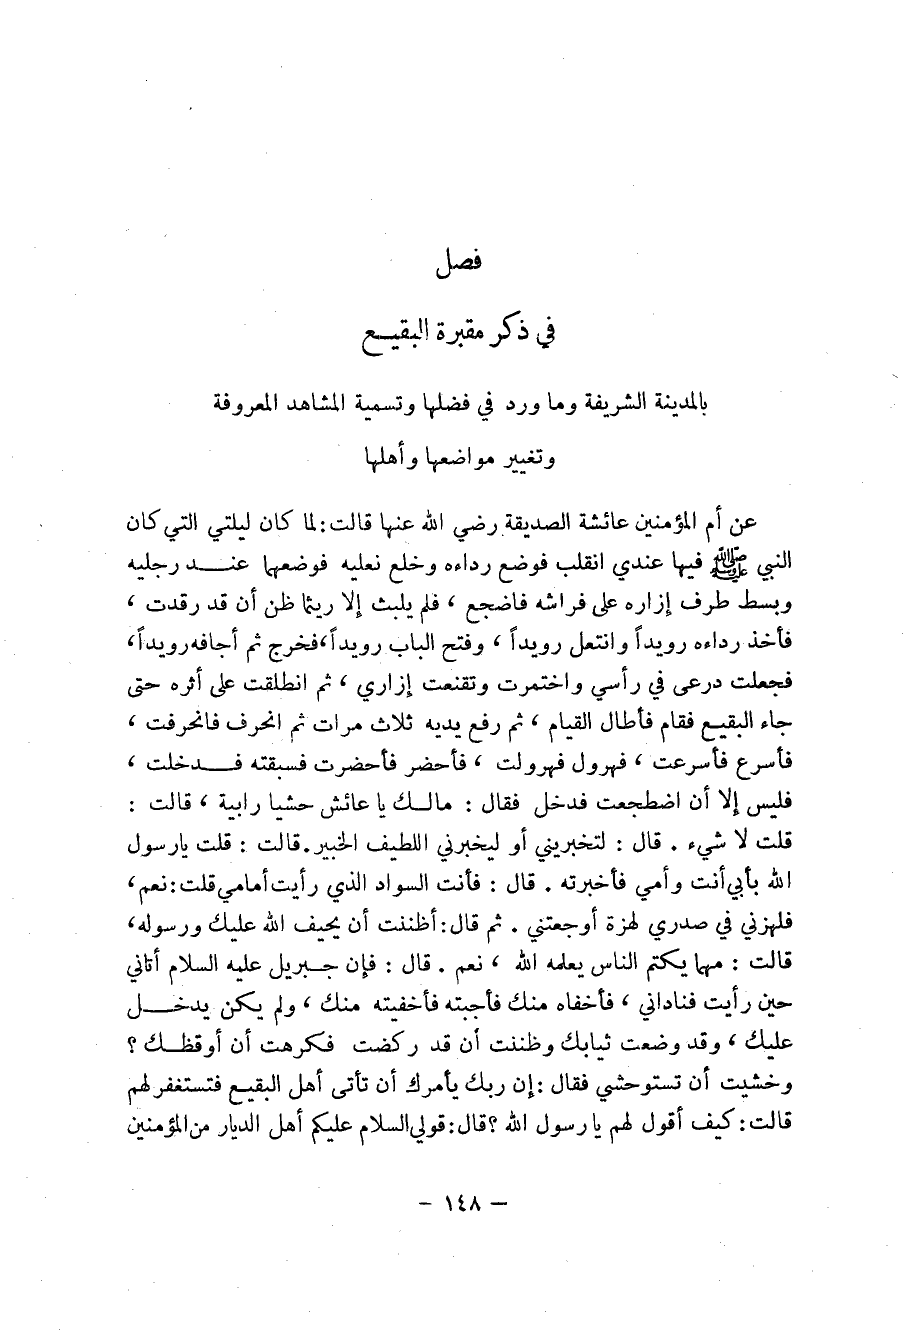 فصل
في ذكر مقبرة البقيـع
بالمدينة الشريفة وما ورد في فضلها وتسمية المشاهد المعروفة
وتغيير مواضعها وأهلها
عن أم المؤمنين عائشة الصديقة رضي الله عنها قالت : لما كان ليلتي التي كان
النبي ﷺ فيها عندي انقلب فوضع رداءه وخلع نعليه فوضعها عنـــد رجليه
وبسط طرف إزاره على فراشه فاضجع ، فلم يلبث إلا ريثما ظن أن قد رقدت ،
فأخذ رداءه رويداً وانتعل رويداً ، وفتح الباب رويداً ، فخرج ثم أجافه رويداً ،
فجعلت درعى في رأسي واختمرت وتقنعت إزاري ، ثم انطلقت على أثره حتى
جاء البقيـع فقام فأطال القيام ، ثم رفع يديه ثلاث مرات ثم انحرف فانحرفت ،
فأسرع فأسرعت ، فهرول فهرولت ، فأحضر فأحضرت فسبقته فــدخلت ،
فليس إلا أن اضطجعت فدخل فقال : مالـك يا عائش حشيا رابية ، قالت :
قلت لا شيء . قال : لتخبريني أو ليخبرني اللطيف الخبير . قالت : قلت يارسول
الله بأبي أنت وأمي فأخبرته . قال : فأنت السواد الذي رأيت أمامي قلت : نعم ،
فلهزني في صدري لهزة أوجعتني . ثم قال : أظننت أن يحيف الله عليك ورسوله ،
قالت : مهما يكتم الناس يعلمه الله ، نعم . قال : فإن جـبريل عليه السلام أتاني
حين رأيت فناداني ، فأخفاه منك فأجبته فأخفيته منك ، ولم يكن يدخــل
عليك ، وقد وضعت ثيابك وظننت أن قد ركضت فكرهت أن أوقظـك ؟
وخشيت أن تستوحشي فقال : إن ربك يأمرك أن تأتى أهل البقيـع فتستغفر لهم
قالت : كيف أقول لهم يا رسول الله ؟ قال : قولي السلام عليكم أهل الديار من المؤمنين
– ١٤٨ –